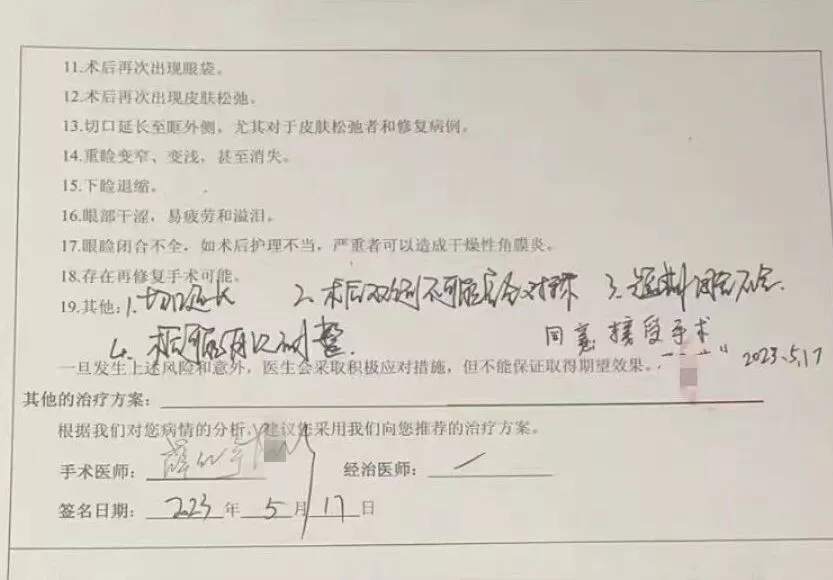 11.术后再次出现眼袋。
12.术后再次出现皮肤松弛。
13.切口延长至眶外侧，尤其对于皮肤松弛者和修复病例。
14.重睑变窄、变浅，甚至消失。
15.下睑退缩。
16.眼部干涩，易疲劳和溢泪。
17.眼睑闭合不全，如术后护理不当，严重者可以造成干燥性角膜炎。
18.存在再修复手术可能。
19.其他：1.切口延长 2.术后双侧不可能完全对称 3.短期闭合不全.
4.术后可能再次
同意接受手术
一旦发生上述风险和意外，医生会采取积极应对措施，但不能保证取得期望效果。 2023.5.17
其他的治疗方案：
根据我们对您病情的分析，建议您采用我们向您推荐的治疗方案。
手术医师： 经治医师：
签名日期：2023年5月17日